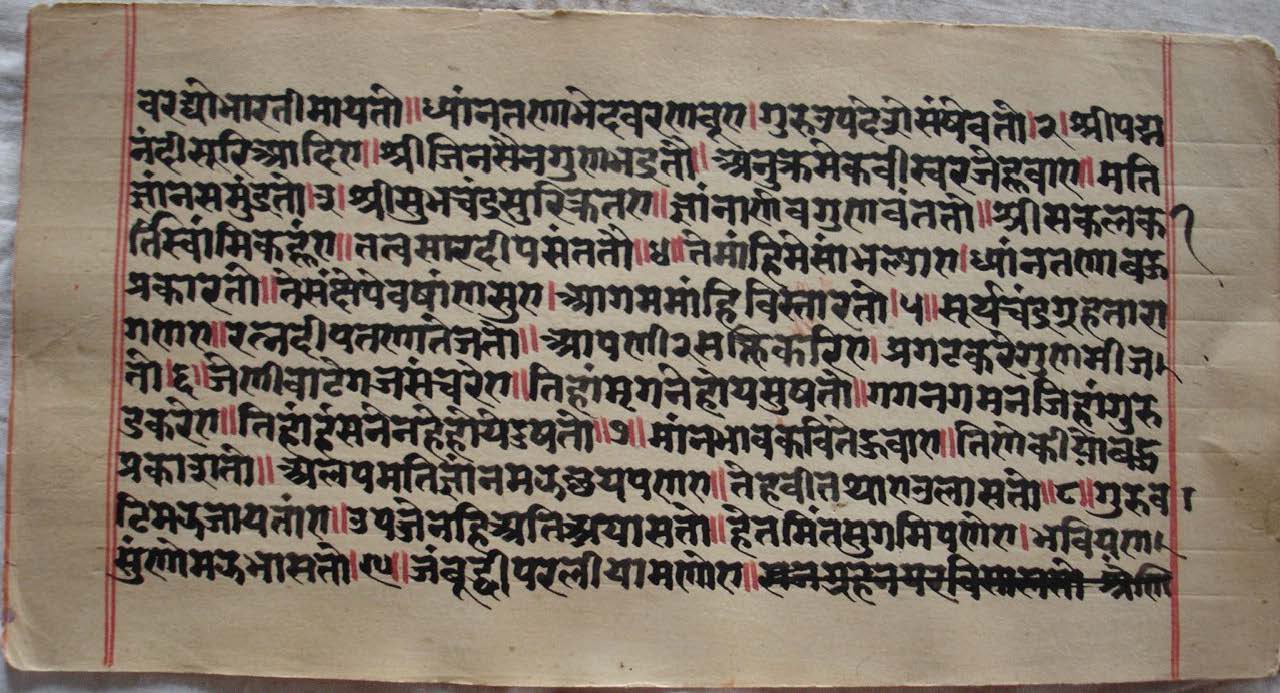 वरद्यो भारती मायतो ॥ ध्यांन तणा भेद वरणवूए । गुरु उपदेशे संषेवतो । २ । श्री पद्म
नंदी सूरि आदिए ॥ श्री जिनसेन गुणभद्रतो ॥ अनुक्रमे कवीस्वर जेह्नवाए ॥ मति
ज्ञांन समुंद्रतो । ३ । श्री सुभचंद्र सुरि क्रतए ॥ ज्ञांनार्णव गुणवंततो ॥ श्री सकलक
र्तिस्वांमि कह्लंए ॥ तत्वसारदीप संततो ॥ ४ ॥ ते मांहि मे सांभल्याए । ध्यांन तणा बहु
प्रकारतो ॥ ते संक्षेपे वषांणसुए । आगम मांहि विस्तारतो । ५ ॥ सूर्य चंद्र ग्रह तारा
गणए ॥ रत्न दीप तणा तेजतो ॥ आपणी २ सक्ति करिए । प्रगट करे गुणमी ज
तो । ६ । जेणी वाटे गज संचरेए ॥ तिहां मृगने होय सुषतो ॥ गगन गमन जिहां गुरु
ड करेए ॥ तिहां हंसने नहे होये दुषतो ॥ ७ ॥ मांन भाव कवि ते हुवाए ॥ तिणे कीयो बहु
प्रकाशतो ॥ अलप मति ज्ञांन मझ छयपणए ॥ तेहवी तथाए उलासतो ॥ ८ ॥ गुरु व
टि मझ जायतांए ॥ उपजे नहि अति अयासतो ॥ हेत मित सुगमि पणेए । भवियण
सुंणो मझ भासतो । ९ । जंबूद्वीप रलीयामणोए ॥